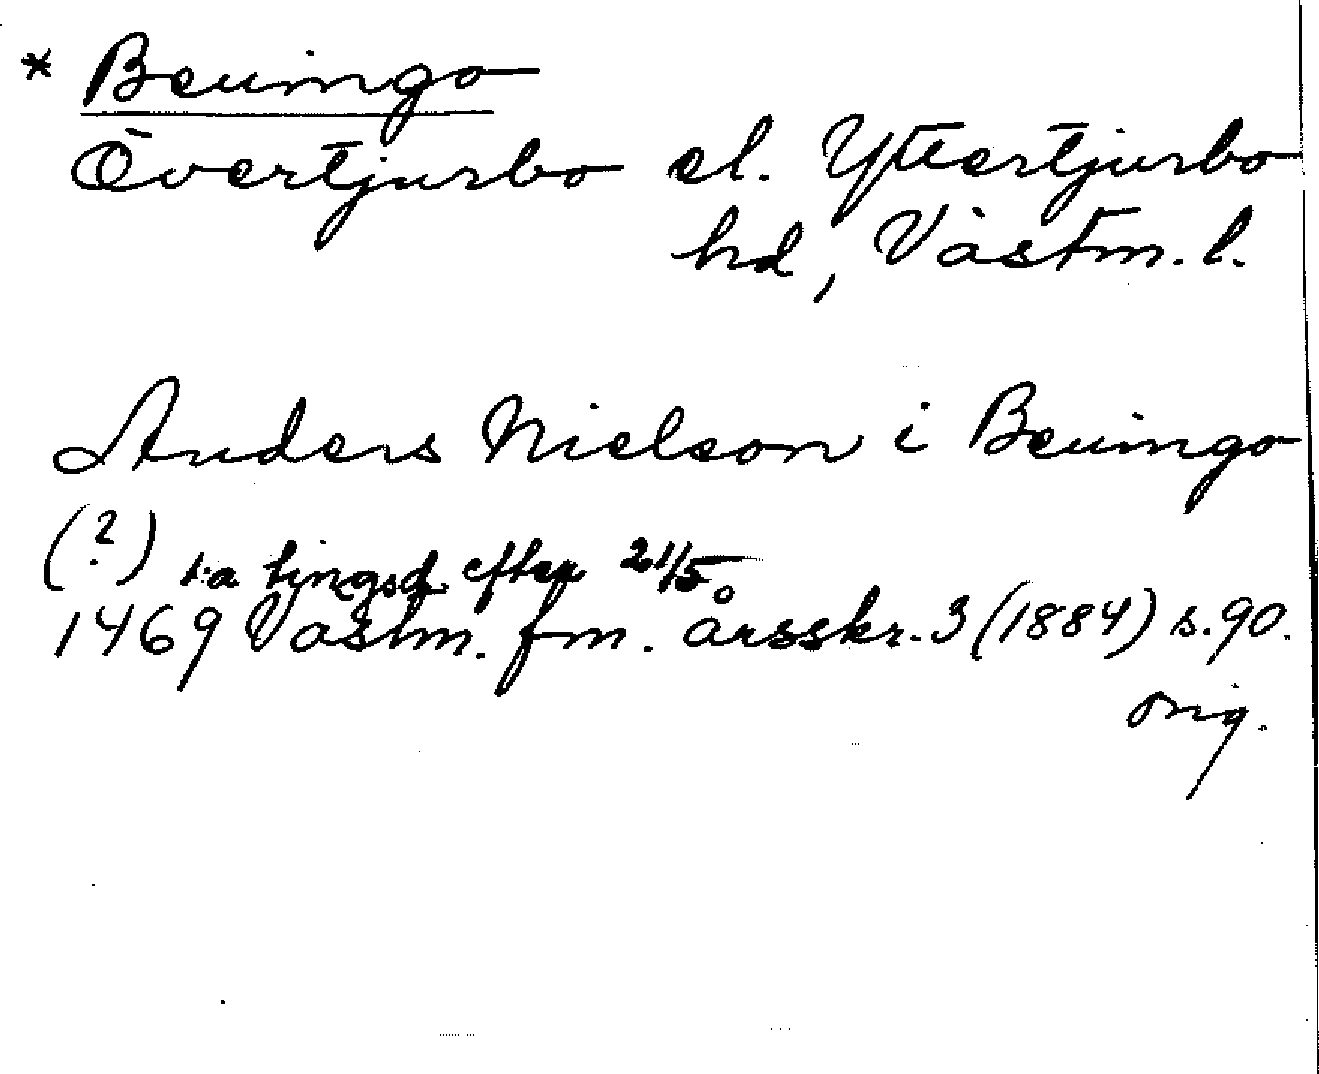 * Beuingo
Övertjurbo el. Yttertjurbo
hd, Västm. l.
Anders Nielson i Beuingo
(?) 1:a tingsd. efter 21/5
1469 Västm. fm. årsskr. 3 (1884) s. 90.
orig.